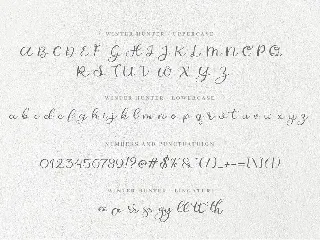 WINTER HUNTER - UPPERCASE
A B C D E F G H I J K L M N O P Q
R S T U V W X Y Z
WINTER HUNTER - LOWERCASE
a b c d e f g h i j k l m n o p q r s t u v w x y z
NUMBERS AND PUNCTUATION
0123456789!?@#$%&*(/)_+-=[\](|)
WINTER HUNTER - LIGATURES
gy ll tt th